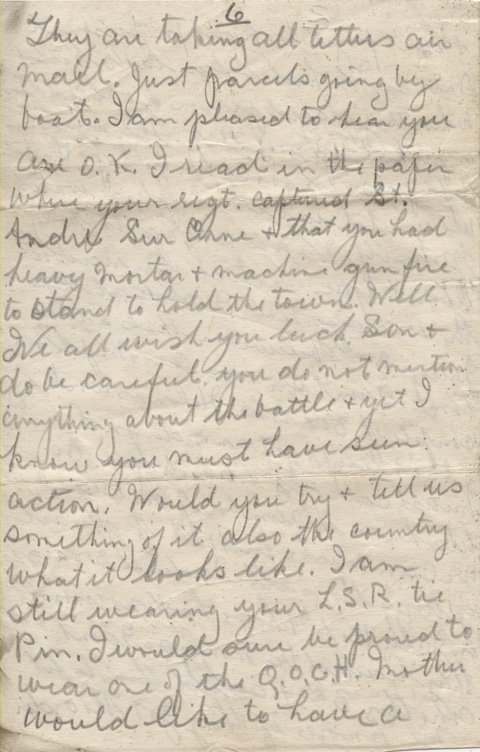 6
They are taking all letters air
Mail. Just parcels going by
boat. I am pleased to hear you
are O.K. I read in the paper
where your regt. captured St.
Andre Sur Orne + that you had
heavy mortar + machine gun fire
to stand to hold the town. Well
We all wish you luck Son +
do be careful. you do not mention
anything about the battle + yet I
know you must have seen
action. Would you try + tell us
something of it also the country
what it looks like. I am
still wearing your L.S.R. tie
Pin. I would sure be proud to
wear one of the Q.O.C.H. Mother
would like to have a